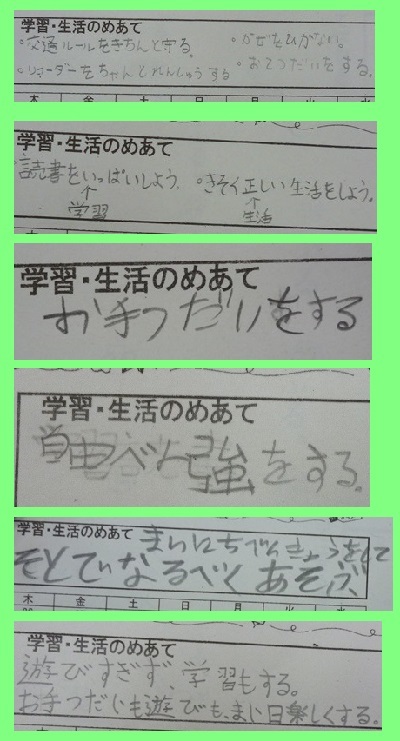 学習・生活のめあて
・交通ルールをきちんと守る。 ・かぜをひかない。
・リコーダーをちゃんとれんしゅうする ・おてつだいをする。
木 金 土 日 月 火 水
学習・生活のめあて
・読書をいっぱいしよう。 ・きそく正しい生活をしよう。
↑ ↑
学習 生活
学習・生活のめあて
お手つだいをする
学習・生活のめあて
自由べん強をする。
学習・生活のめあて まいにちべんきょうをして
そとでなるべくあそぶ
木 金 土 日 月 火 水
学習・生活のめあて
遊びすぎず、学習もする。
お手つだいも遊びも、まい日楽しくする。